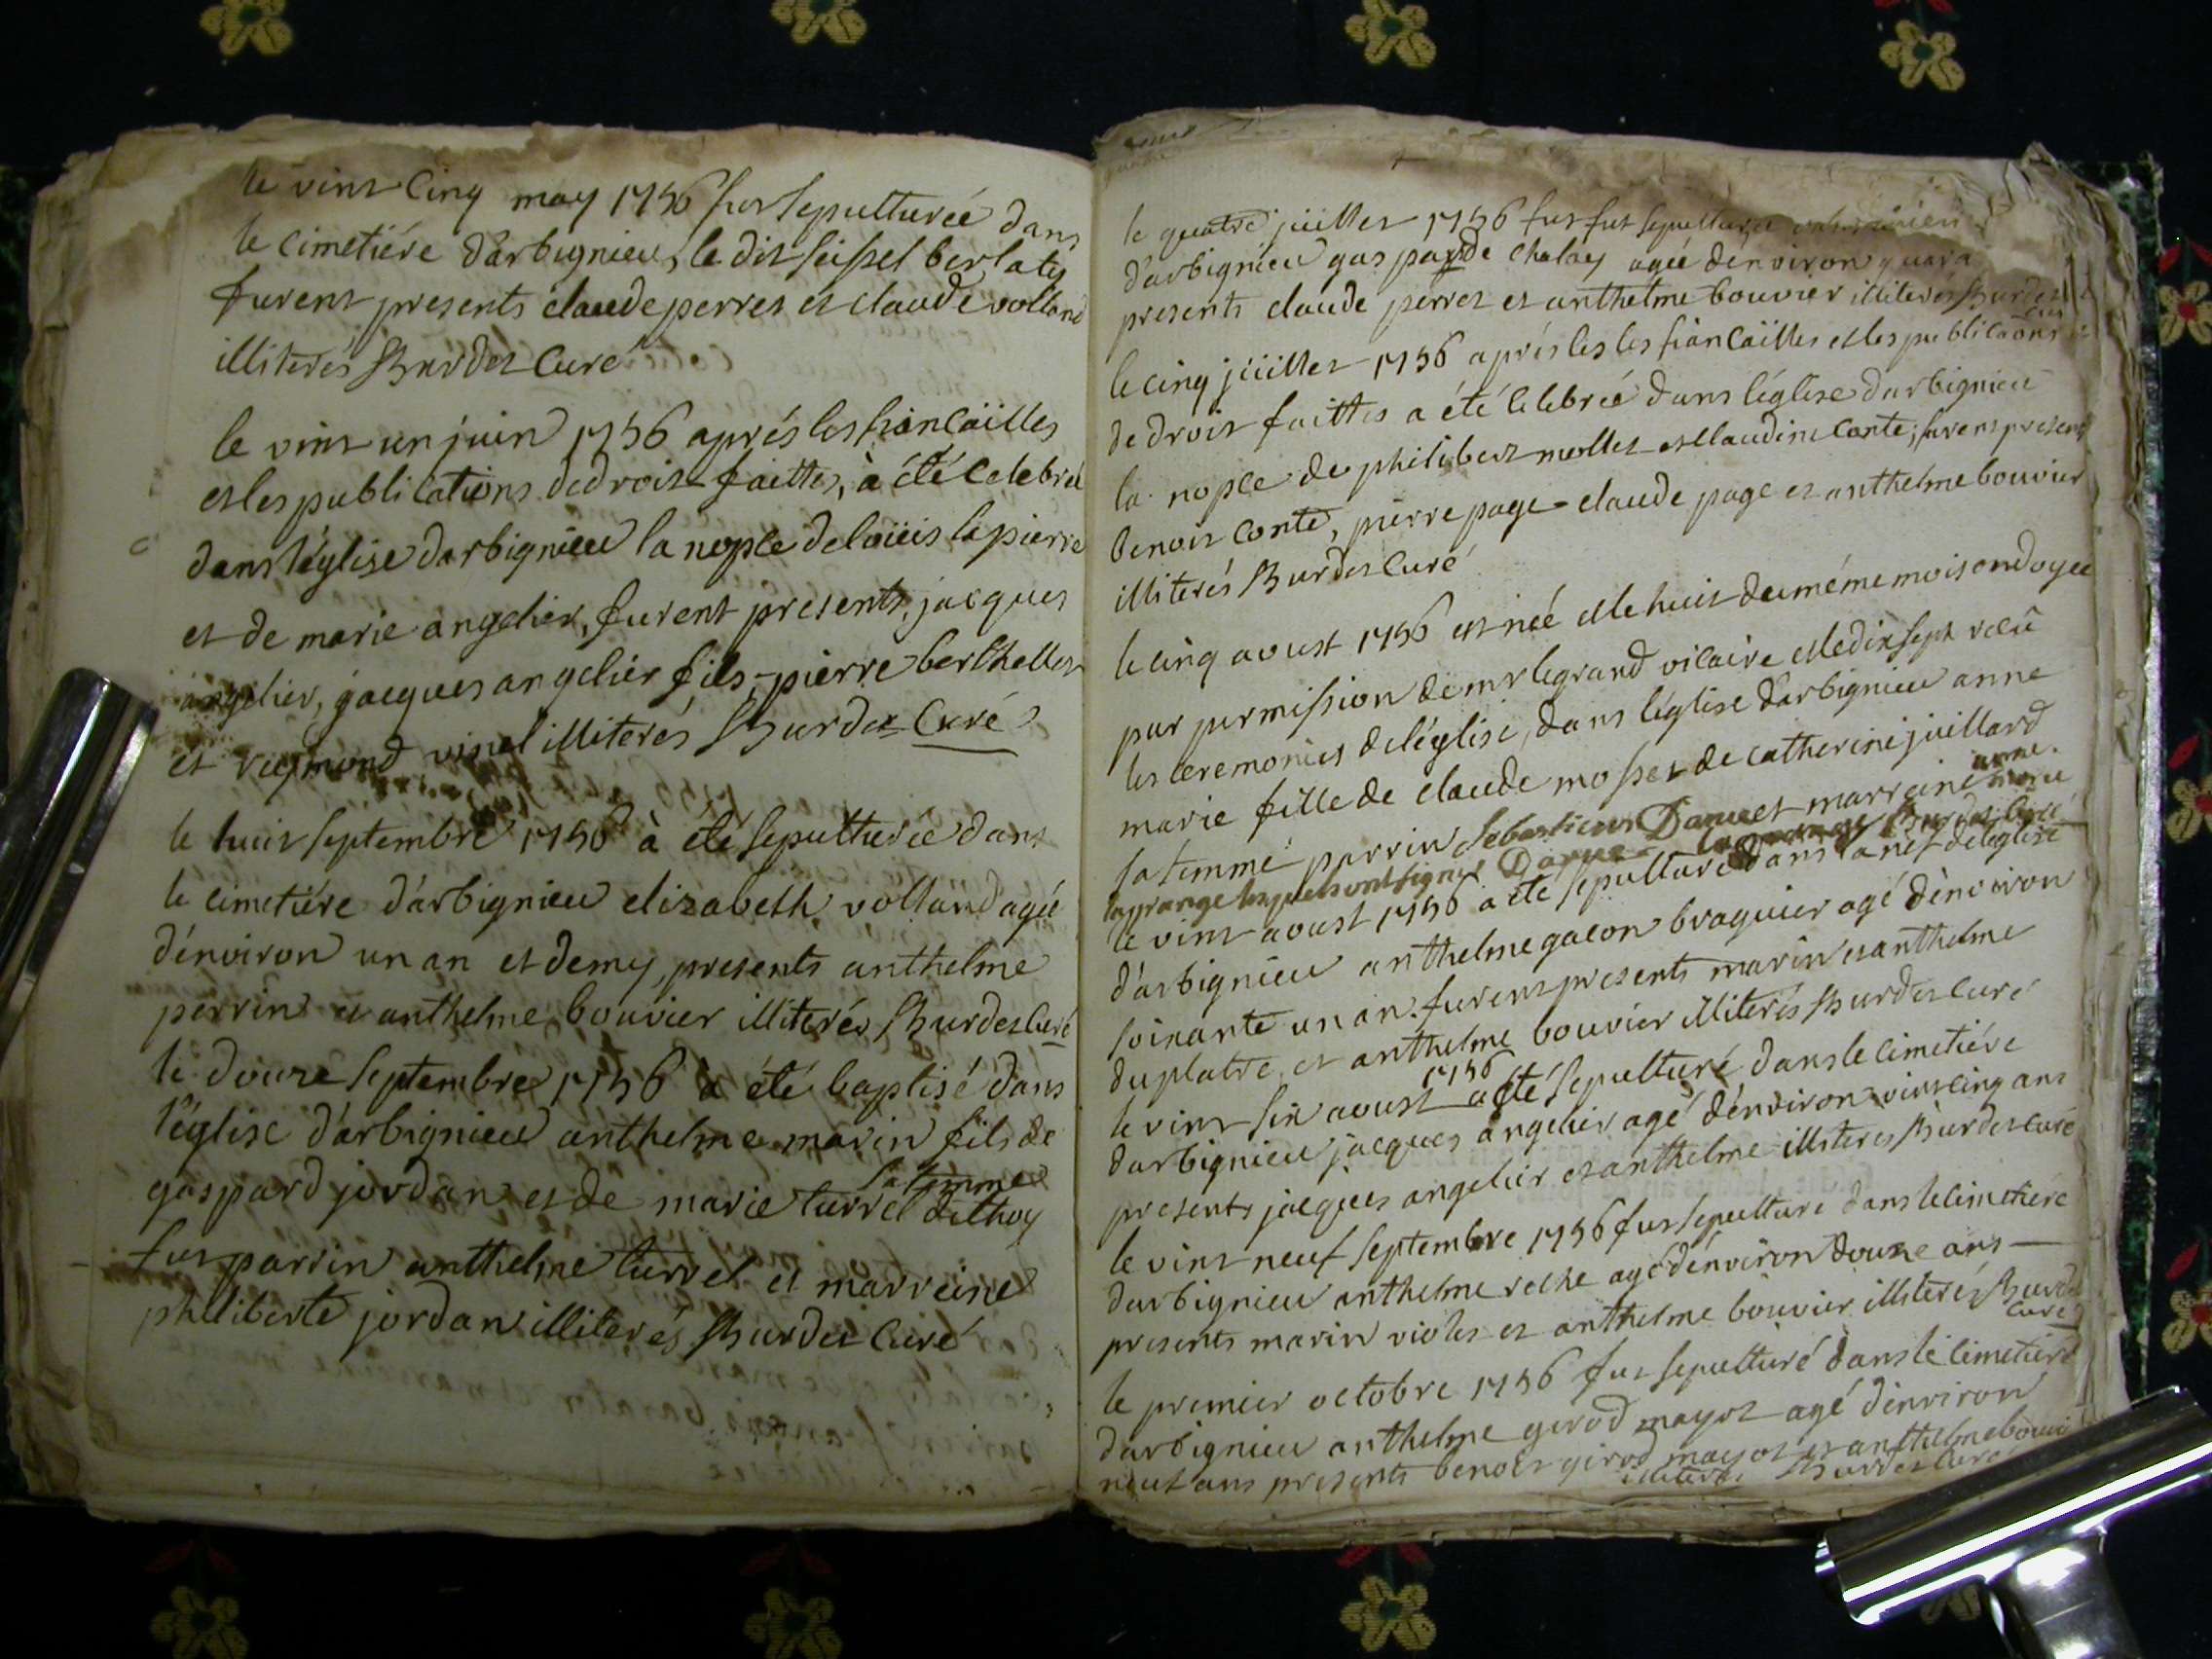 le vint cinq may 1756 fut sepulturée dans
le cimetiére d'arbignieu, le dit seissel berlatij
furent presents claude perret et claude volland
illiterés Burdet Curé
le vint un juin 1756 aprés les fiancäilles
et les publications de droit faittes, à été Celebreé
dans l'église d'arbignieu la nopce de loüis lapierre
et de marie angelier, furent presents, jacques
angelier, jacques angelier fils, pierre berthellet
et reymond vinel illiterés Burdet Curé
le huit septembre 1756 à éte sepulturée dans
le cimetiére d'arbignieu elizabeth volland agée
d'environ un an et demy, presents anthelme
perrin et anthelme bouvier illiterés Burdet Curé
le douze septembre 1756 à été baptisé dans
l'église d'arbignieu anthelme marin fils de
gaspard jordan et de marie turrel sa femme
fut parrin anthelme turrel et marreine
philiberte jordan illiterés Burdet Curé
le quatre jüillet 1756 fut fut sepulturée
d'arbignieu gaspard de chaley agée d'environ quara
presents claude perret et anthelme bouvier illiterés Burdet
cur
le cinq jüillet 1756 aprés les les fiancäilles et les publicaons
de droit faittes a été celebreé dans l'église d'arbignieu
la nopce de philibert mollet et claudine Conte; furent present
benoit Conte, pierre page claude page et anthelme bouvier
illiterés Burdet Curé
le cinq aoust 1756 est neé et le huit du méme mois ondoyee
par permission de mr legrand vicaire et le dix sept reçû
les ceremonies de l'église, dans l'église d'arbignieu anne
marie fille de claude mosset de catherine juillard
sa femme parrin Sebastien Danuet marreine anne marie
lagrange lesquels ont signé
le vint aoust 1756 a été sepulturé dans la nef de l'église
d'arbignieu anthelme galon braquier agé d'environ
soixante un an. furent presents marin et anthelme
duplatre, et anthelme bouvier illiterés Burdet Curé
le vint six aoust 1756 a été sepulturé dans le cimetiére
d'arbignieu jacques angelier agé d'environ vint cinq ans
presents jacques angelier et anthelme illiteres Burdet curé
le vint neuf septembre 1756 fut sepulturé dans le cimetiére
d'arbignieu anthelme roche agé d'environ douze ans
presents marin violet et anthelme bouvier illiterés Burdet
curé
le premier octobre 1756 fut sepulturé dans le cimetiére
d'arbignieu anthelme girod mayot agé d'environ
neuf ans presents benoit girod mayot et anthelme bouvi
illiterés Burdet Curé